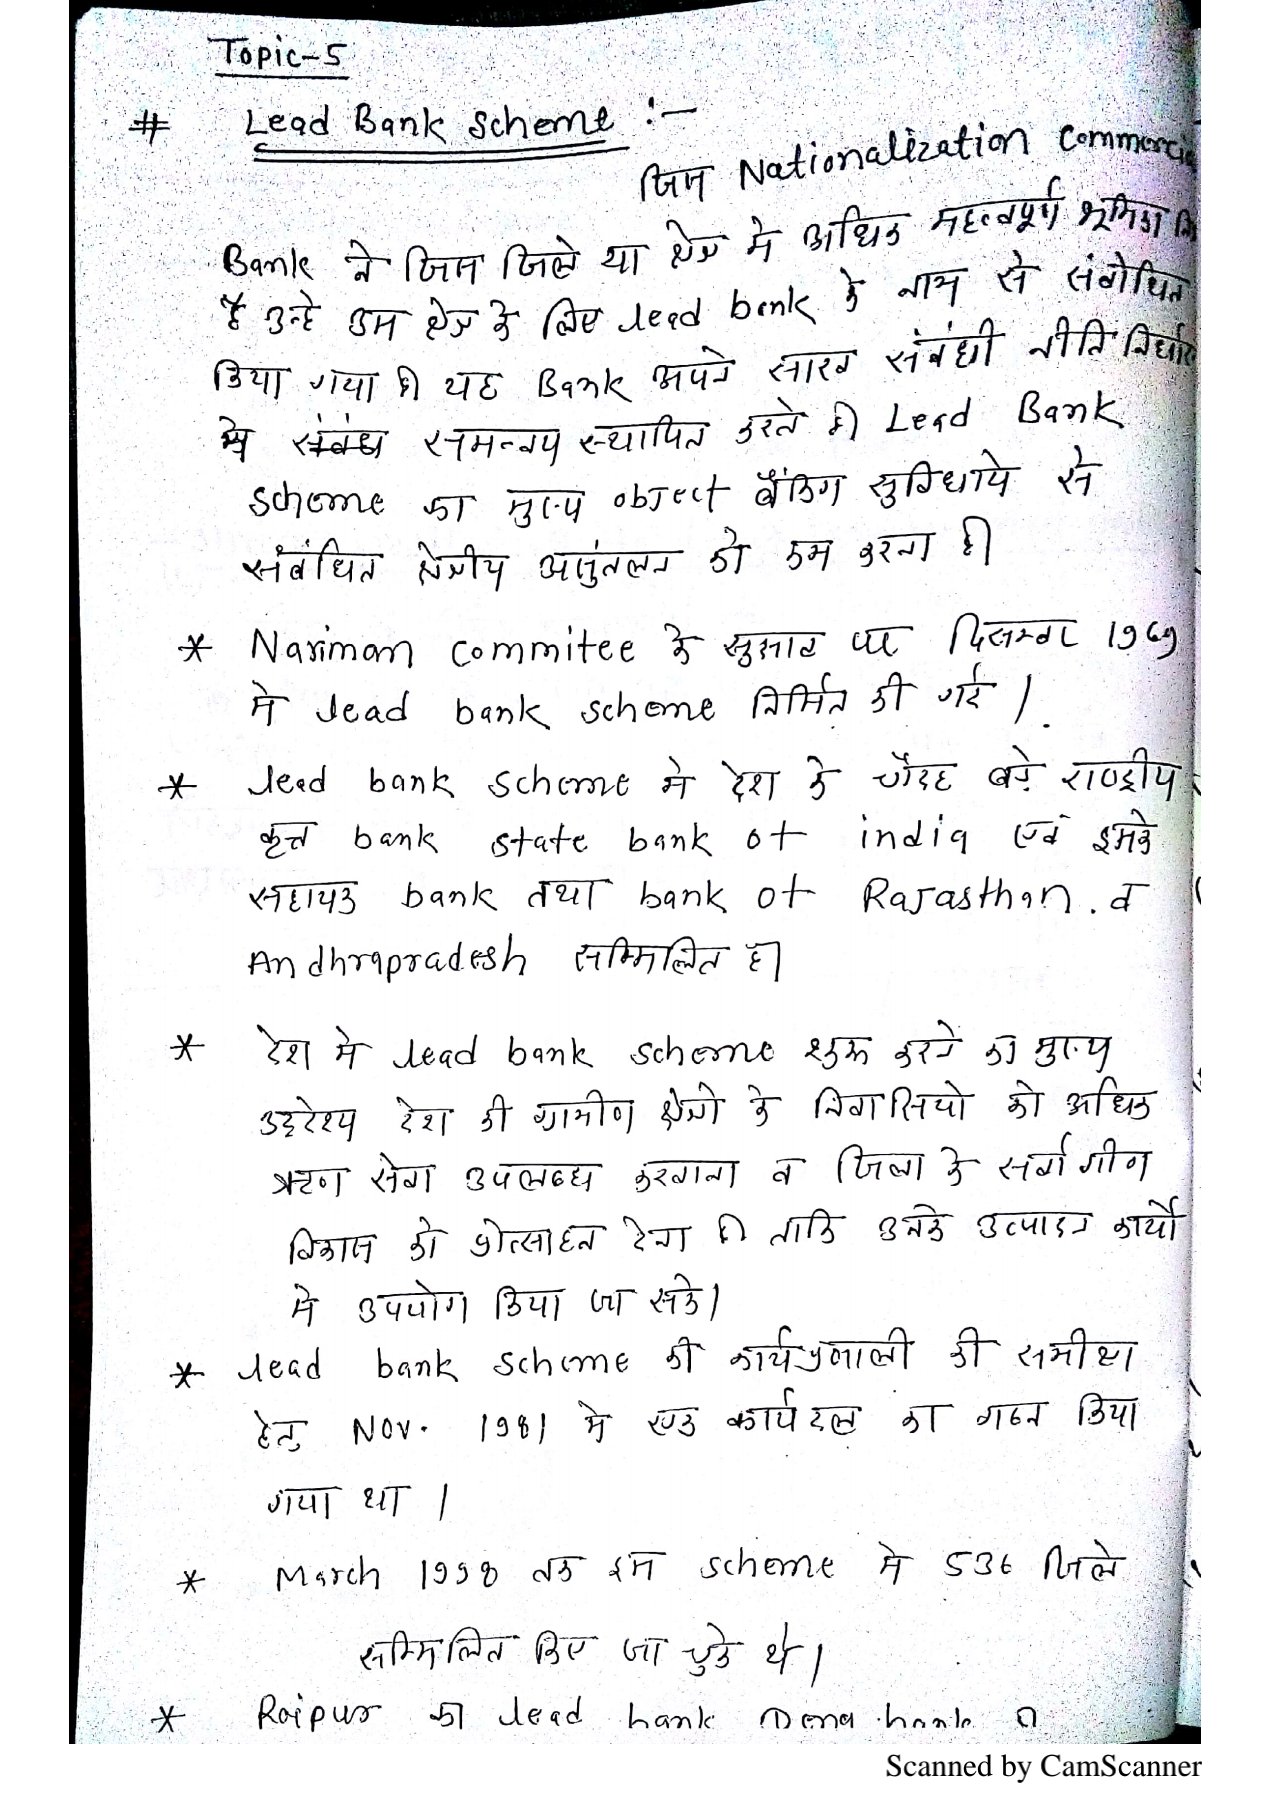 Topic-5
# Lead Bank Scheme :-
जिस Nationalization Commerci
Bank ने जिस जिले या क्षेत्र मे अधिक महत्वपूर्ण भूमिका नि
है उन्हे उस क्षेत्र के लिए lead bank के नाम से संबोधित
किया गया है। यह Bank अपने साख संबंधी नीति निर्धार
मे संबंध समन्वय स्थापित करते है। Lead Bank
scheme का मुख्य object बैंकिग सुविधाये से
संबंधित क्षेत्रीय असुंतलन को कम करना है।
* Nariman commitee के सुझाव पर दिसम्बर 1969
मे lead bank scheme निर्मित की गई।
* lead bank scheme मे देश के चौदह बड़े राष्ट्रीय
कृत bank state bank of india एवं इसके
सहायक bank तथा bank of Rajasthan. व
Andhrapradesh सम्मिलित है।
* देश मे lead bank scheme शुरू करने का मुख्य
उद्देश्य देश की ग्रामीण क्षेत्रो के निवासियो को अधिक
ऋण सेवा उपलब्ध करवाना व जिला के सर्वागीण
विकास को प्रोत्साहन देना है ताकि उनके उत्पादन कार्यो
मे उपयोग किया जा सके।
* lead bank scheme की कार्यप्रणाली की समीक्षा
हेतु Nov. 1981 मे एक कार्यदल का गठन किया
गया था।
* March 1998 तक इस scheme मे 536 जिले
सम्मिलित किए जा चुके थे।
* Raipur का lead bank Dena bank है
Scanned by CamScanner